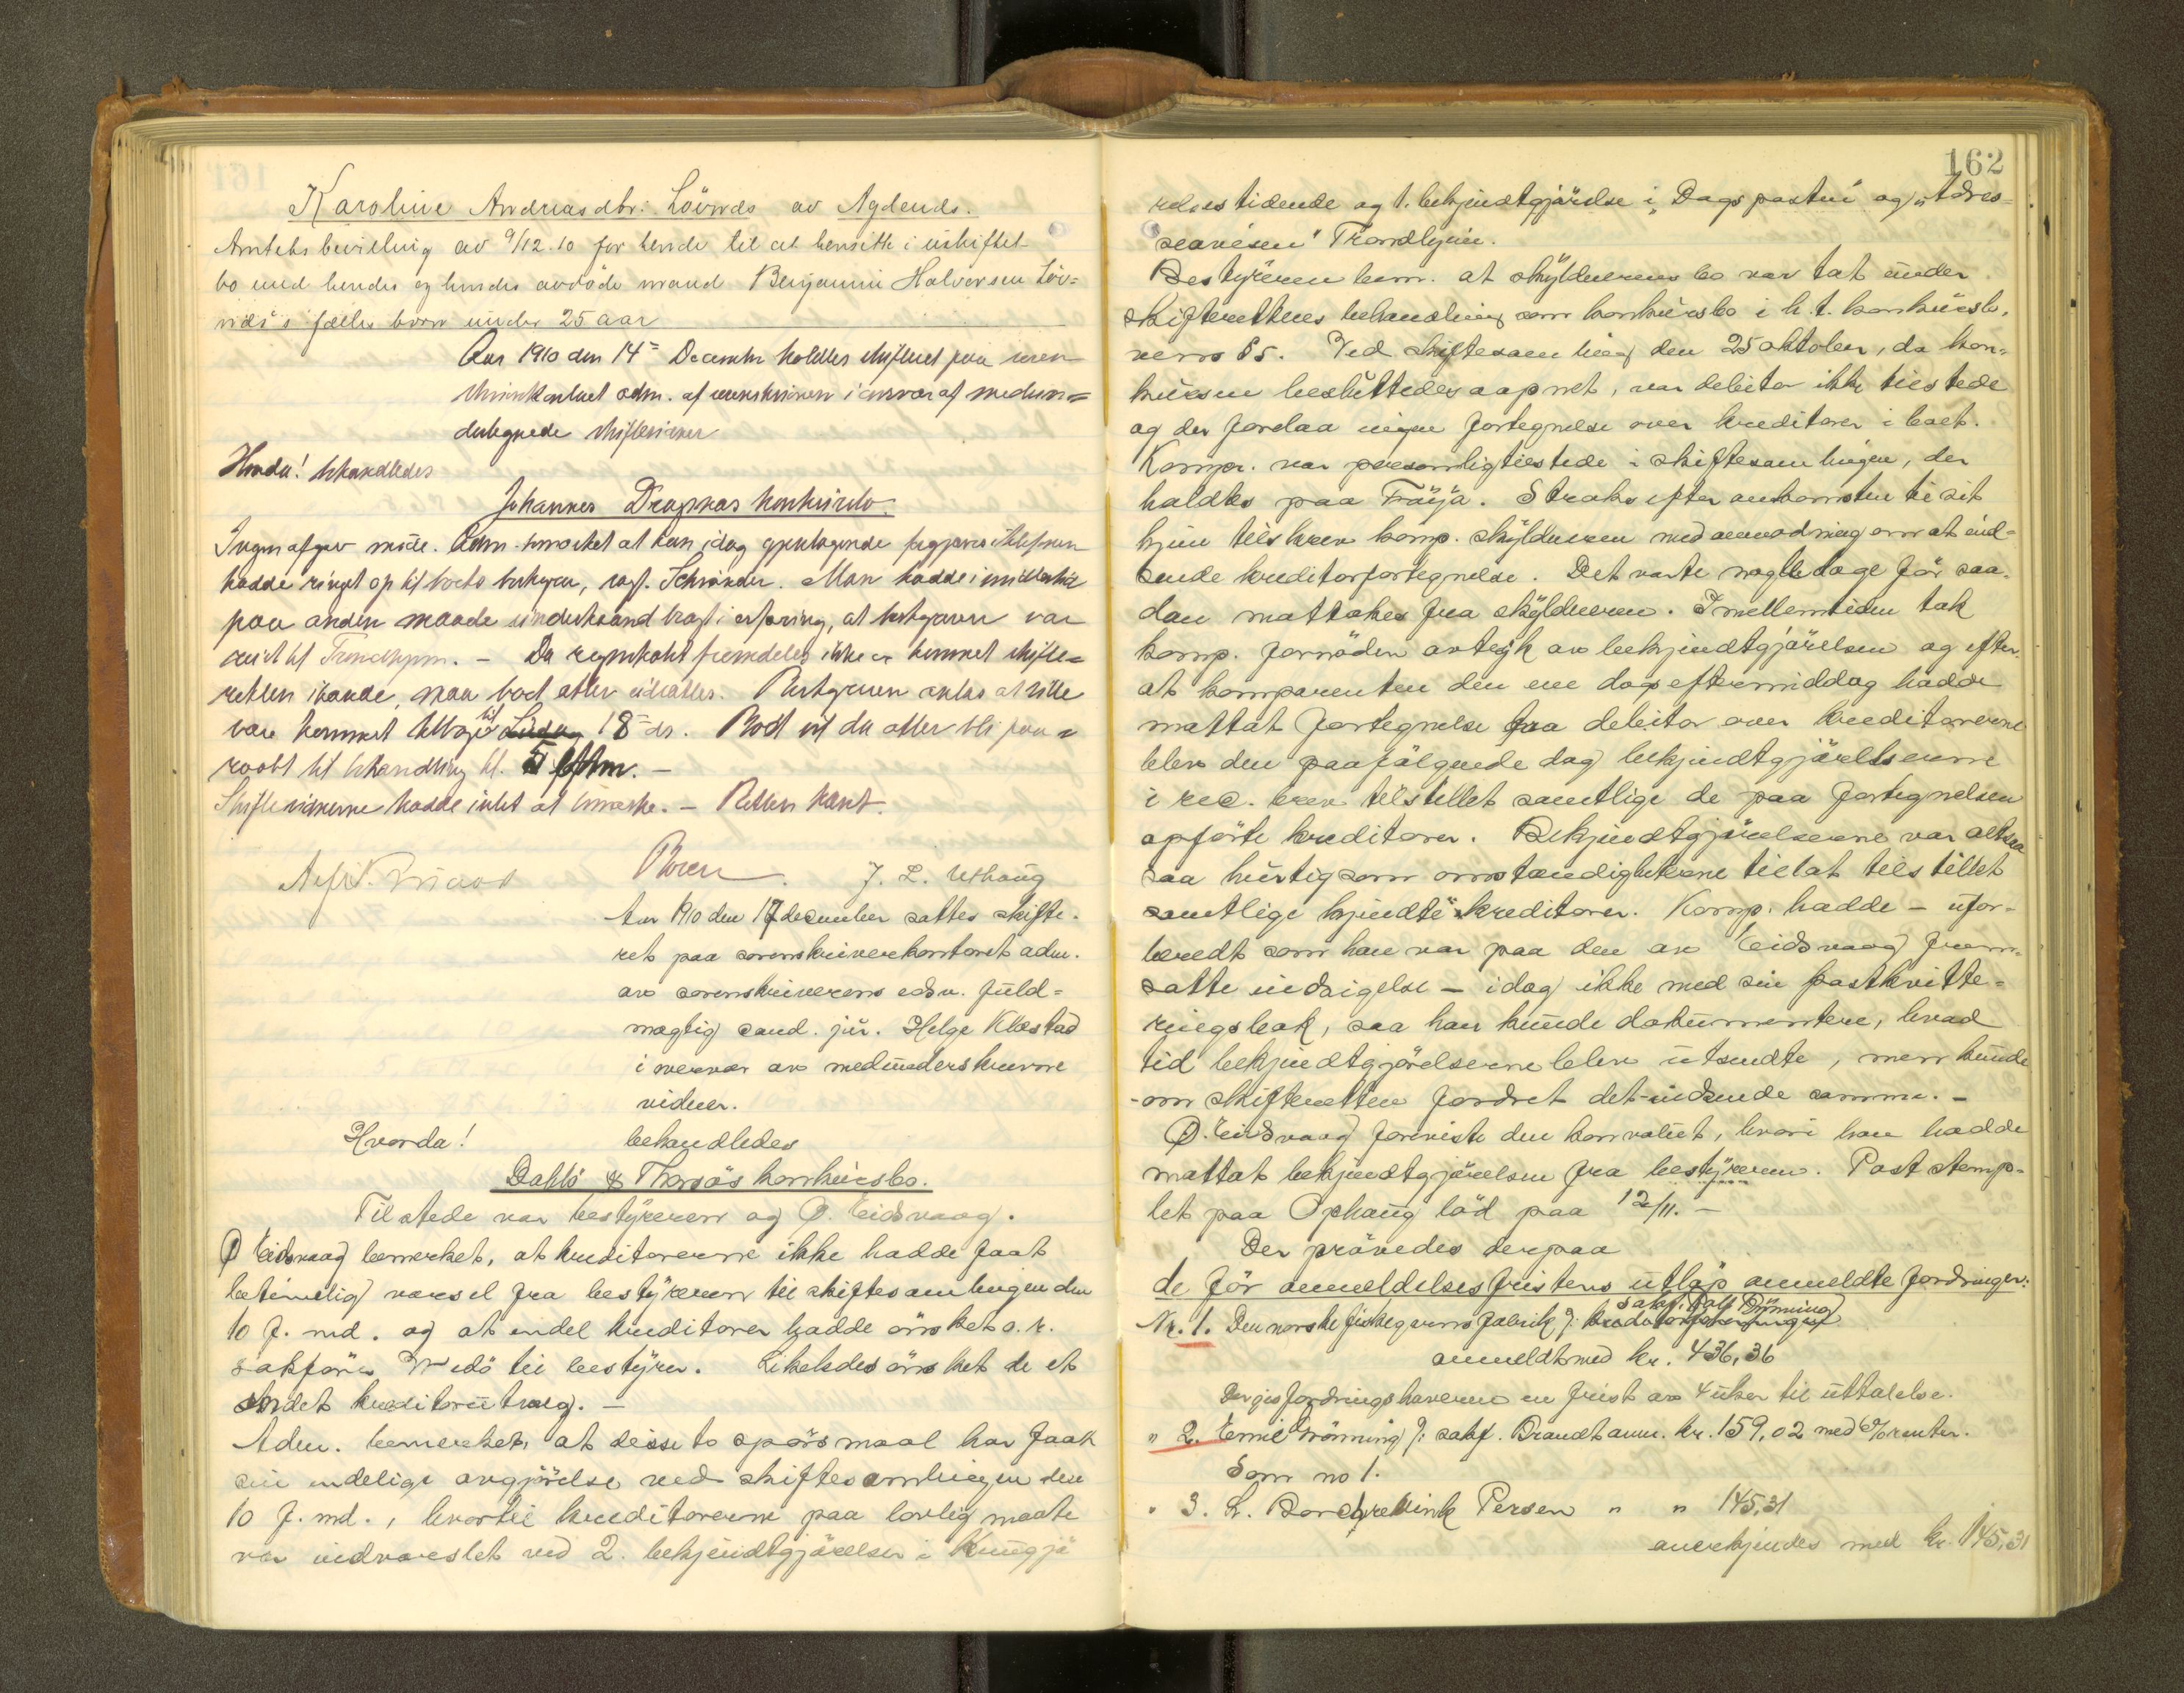 Karoline Andreasdtr. Lövnds av Agdends.
Amtets bevilling av 9/12.10 for hende til at hensitte i uskiftet
bo med hendes og hendes avdöde mand Benjamin Halvorsen Löv=
nds's fælles born under 25 aar
Aar 1910 den 14de December holdtes skifteret paa soren
skriverkontoret adm. af sorenskriveren i nærvær af medun=
dertegnede skiftevidner
Hvorda! behandledes
Johannes Draqnas konkursbo.
Ingen afgav möde. Adm. bemærket at han idag gjentagende forgjæves
hadde ringet op til boets bestyrer, sagf. Schröder. Man hadde imidlertid
paa anden maade underhaand bragt i erfaring, at bestyreren var
reist til Trondhjem. – Da regnskabet fremdeles ikke er kommet skifte=
retten ihænde, maa boet atter utsættes. Bestyreren antas at ville
være kommet tilbage til Lördag 18de ds. Boet vil da atter bli paa=
raabt til behandling kl. 5 eftm. –
Skiftevidnerne hadde intet at bemærke. – Retten hævet.
J. L. Uthaug
Aar 1910 den 17 december sattes skifte-
ret paa sorenskriverkontoret adm.
av sorenskriverens edsv. fuld=
mægtig cand. jur. Helge Klæstad
i nærvær av medunderskrevne
vidner.
Hvorda! behandledes
Dahlö & Thorsös konkursbo.
Tilstede var bestyreren og O. Eidsvaag.
O Eidsvaag bemerket, at kreditorerne ikke hadde faat
betimelig varsel fra bestyreren til skiftesamlingen den
10 f. md. og at endel kreditorer hadde önsket o. r.
sakförer Wedö til bestyrer. Likeledes önsket de et
andet kreditorutvalg. –
Adm. bemerket, at disse to spörsmaal har faat
sin endelige avgjörelse ved skiftesamlingen den
10 f. md., hvortil kreditorerne paa lovlig maate
var indvarslet ved 2. bekjendtgjörelser i Kungjö
162
relses tidende og 1. bekjendtgjörelse i „Dagsposten" og „Adres=
seavisen" Trondhjem.
Bestyreren bem. at skyldnerens bo var tat under
skifterettens behandling som konkursbo i h.t. konkursl.
vens § 5. Ved skiftesamling den 25 oktober, da kon=
kursen besluttedes aapnet, var debitor ikke tilstede
og der forelaa ingen fortegnelse over kreditorer i boet.
Kompr. var personlig tilstede i skiftesamlingen, der
holdtes paa Fröya. Straks efter ankomsten til sit
hjem tilskrev komp. skyldneren med anmodning om at ind=
sende kreditorfortegnelse. Det varte nogle dage för saa-
dan mottokes fra skyldneren. I mellemtiden tok
komp. fornöden avtryk av bekjendtgjörelsen og efter
at komparenten den ene dags eftermiddag hadde
mottat fortegnelse fra debitor over kreditorerne
blev den paafölgende dag bekjendtgjörelserne
i rec. brev tilstillet samtlige de paa fortegnelsen
opförte kreditorer. Bekjendtgjörelserne var altsaa
saa hurtig som omstændigheterne tillot tilstillet
samtlige „kjendte" kreditorer. Komp. hadde – ufor-
beredt som han var paa den av Eidsvaag frem=
satte indsigelse – idag ikke med sin postkvitte=
ringsbok, saa han kunde dokumentere, hvad
tid bekjendtgjörelserne blev utsendte, men kunde
– om skifteretten fordret det – indsende samme. –
O. Eidsvaag foreviste den konvolut, hvori han hadde
mottat bekjendtgjörelsen fra bestyreren. Poststemp=
let paa Ophaug löd paa 12/11. –
Der prövedes derpaa
de för anmeldelsesfristens utlöp anmeldte fordringer:
Nr. 1. Den norske fiskegarnsfabrik ɔ: kreditorforeningen sakf. Rolf Brönning
anmeldt med kr. 436,36
Der gis fordringshaveren en frist av 4 uker til uttalelse.
" 2. Emil Brönning ɔ: sakf. Brandt anm. kr. 159,02 med % renter.
Som no 1.
" 3. L. Borchgrevink Persen " " 145,31
anerkjendes med kr. 145,31